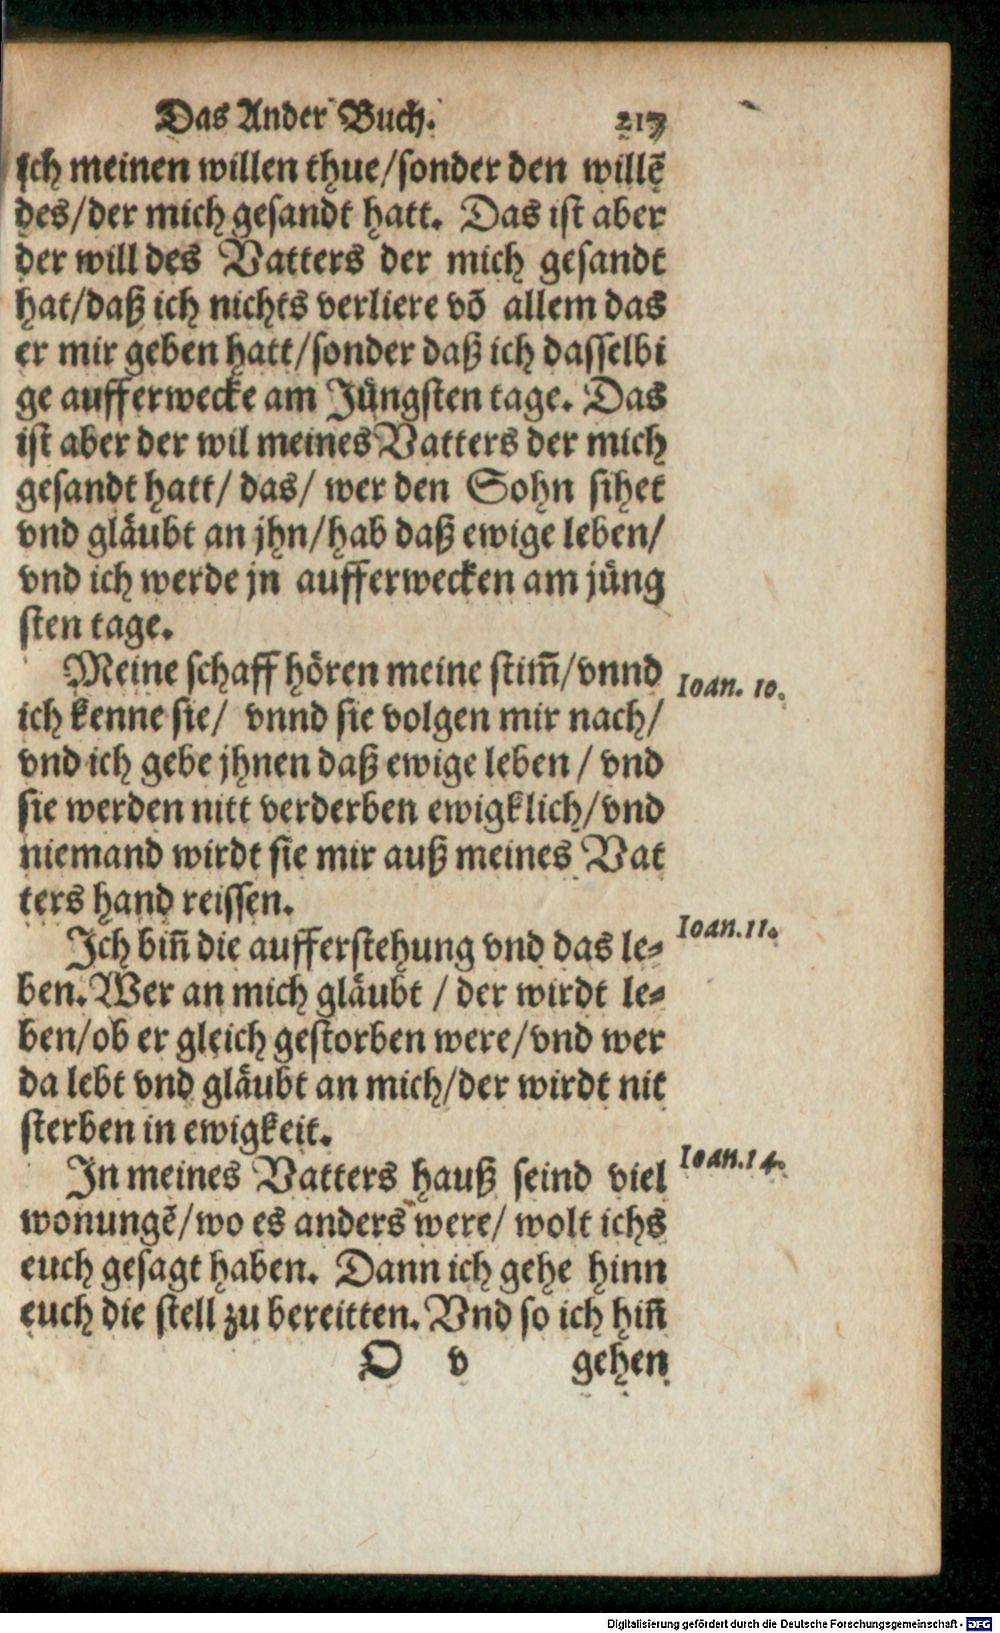 Das Ander Buch. 217
ich meinen willen thue/sonder den willẽ
des/der mich gesandt hatt. Das ist aber
der will des Vatters der mich gesandt
hat/daß ich nichts verliere võ allem das
er mir geben hatt/sonder daß ich dasselbi
ge aufferwecke am Jüngsten tage. Das
ist aber der wil meines Vatters der mich
gesandt hatt/ das/ wer den Sohn sihet
vnd gläubt an jhn/hab daß ewige leben/
vnd ich werde jn aufferwecken am jüng
sten tage.
Meine schaff hören meine stim̃/vnnd Ioan. 10.
ich kenne sie/ vnnd sie volgen mir nach/
vnd ich gebe jhnen daß ewige leben / vnd
sie werden nitt verderben ewigklich/vnd
niemand wirdt sie mir auß meines Vat
ters hand reissen.
Jch biñ die aufferstehung vnd das le- Ioan.11.
ben. Wer an mich gläubt / der wirdt le-
ben/ob er gleich gestorben were/vnd wer
da lebt vnd gläubt an mich/der wirdt nit
sterben in ewigkeit.
Jn meines Vatters hauß seind viel Ioan.14.
wonungẽ/wo es anders were/ wolt ichs
euch gesagt haben. Dann ich gehe hinn
euch die stell zu bereitten. Vnd so ich hiñ
O v gehen
Digitalisierung gefördert durch die Deutsche Forschungsgemeinschaft - DFG